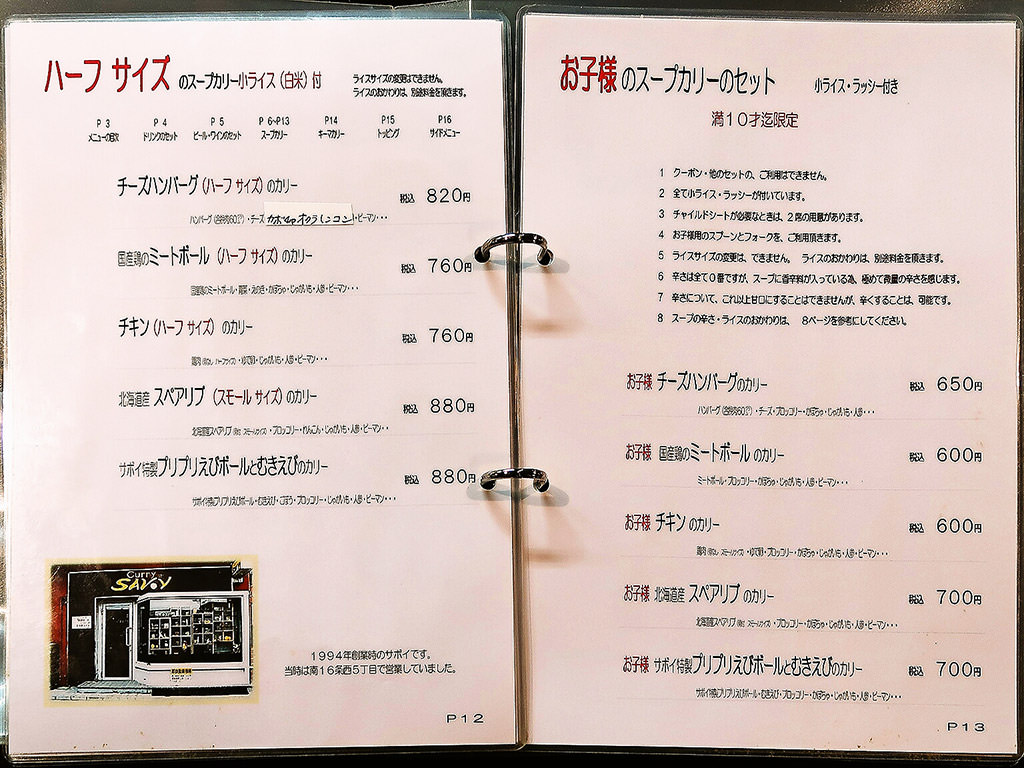 ハーフ サイズ のスープカリー小ライス（白米）付
ライスサイズの変更はできません。
ライスのおかわりは、別途料金を頂きます。
P 3 P 4 P 5 P 6~P13 P14 P15 P16
メニューの目次 ドリンクのセット ビール・ワインのセット スープカリー キーマカリー トッピング サイドメニュー
チーズハンバーグ（ハーフ サイズ）のカリー 税込 820円
ハンバーグ（合挽肉60㌘）・チーズ オクラ レンコン ピーマン・・・
国産鶏のミートボール （ハーフ サイズ）のカリー 税込 760円
国産鶏のミートボール・青菜・えのき・かぼちゃ・じゃがいも・人参・ピーマン・・・
チキン（ハーフ サイズ） のカリー 税込 760円
鶏肉（骨なし ハーフサイズ）・ゆで卵・じゃがいも・人参・ピーマン・・・
北海道産 スペアリブ （スモール サイズ）のカリー 税込 880円
北海道産スペアリブ（骨付 スモールサイズ）・ブロッコリー・れんこん・じゃがいも・人参・ピーマン・・
サボイ特製プリプリえびボールとむきえびのカリー 税込 880円
サボイ特製プリプリえびボール・むきえび・ごぼう・ブロッコリー・じゃがいも・人参・ピーマン・・・
Curry
SAVOY
1994年創業時のサボイです。
当時は南16条西5丁目で営業していました。
P12
お子様 のスープカリーのセット 小ライス・ラッシー付き
満10才迄限定
1 クーポン・他のセットの、ご利用はできません。
2 全て小ライス・ラッシーが付いています。
3 チャイルドシートが必要なときは、2席の用意があります。
4 お子様用のスプーンとフォークを、ご利用頂きます。
5 ライスサイズの変更は、できません。 ライスのおかわりは、別途料金を頂きます。
6 辛さは全て0番ですが、スープに香辛料が入っている為、極めて微量の辛さを感じます。
7 辛さについて、これ以上甘口にすることはできませんが、辛くすることは、可能です。
8 スープの辛さ・ライスのおかわりは、 8ページを参考にしてください。
お子様 チーズハンバーグのカリー 税込 650円
ハンバーグ（合挽肉60㌘）・チーズ・ブロッコリー・かぼちゃ・じゃがいも・人参・・・
お子様 国産鶏のミートボール のカリー 税込 600円
ミートボール・ブロッコリー・かぼちゃ・じゃがいも・人参・ピーマン・・・
お子様 チキン のカリー 税込 600円
鶏肉（骨なし スモールサイズ）・ゆで卵・ブロッコリー・かぼちゃ・じゃがいも・人参・ピーマン・・・
お子様 北海道産 スペアリブ のカリー 税込 700円
北海道産スペアリブ（骨付 スモールサイズ）・ブロッコリー・かぼちゃ・じゃがいも・人参・ピーマン・・・
お子様 サボイ特製プリプリえびボールとむきえびのカリー 税込 700円
サボイ特製プリプリえびボール・むきえび・ブロッコリー・かぼちゃ・じゃがいも・人参・ピーマン・・・
P13